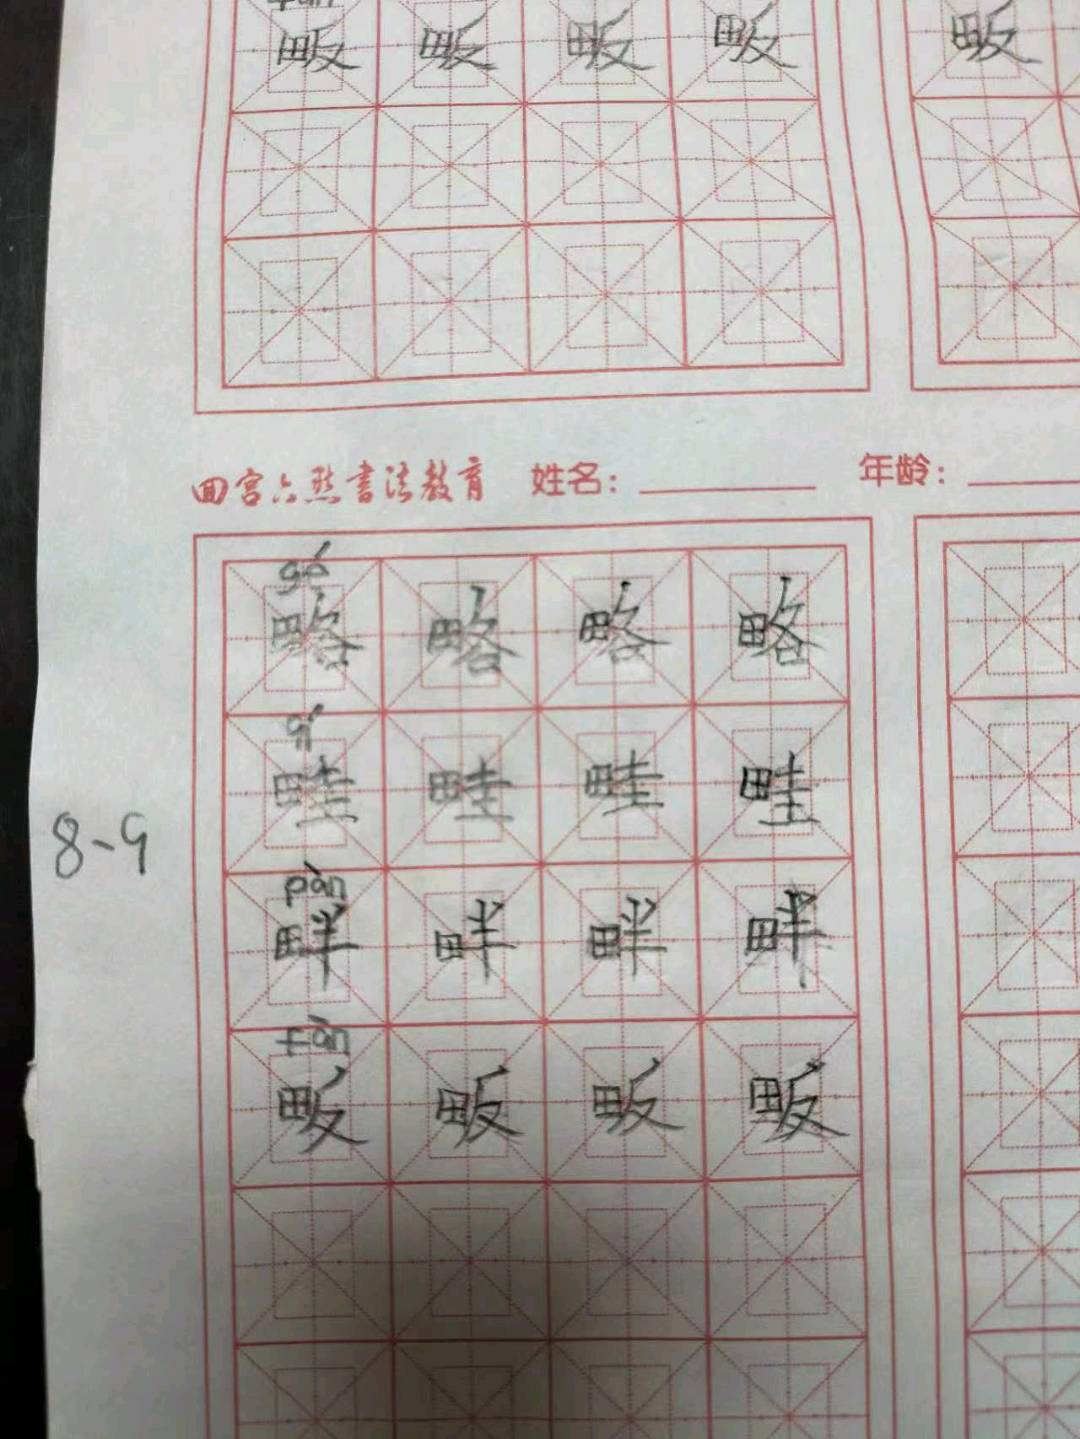 畈 畈 畈 畈 畈
回宫六然書法教育 姓名： 年龄：
gé
略 略 略 略
qí
畦 畦 畦 畦
8-9
pàn
畔 畔 畔 畔
fàn
畈 畈 畈 畈